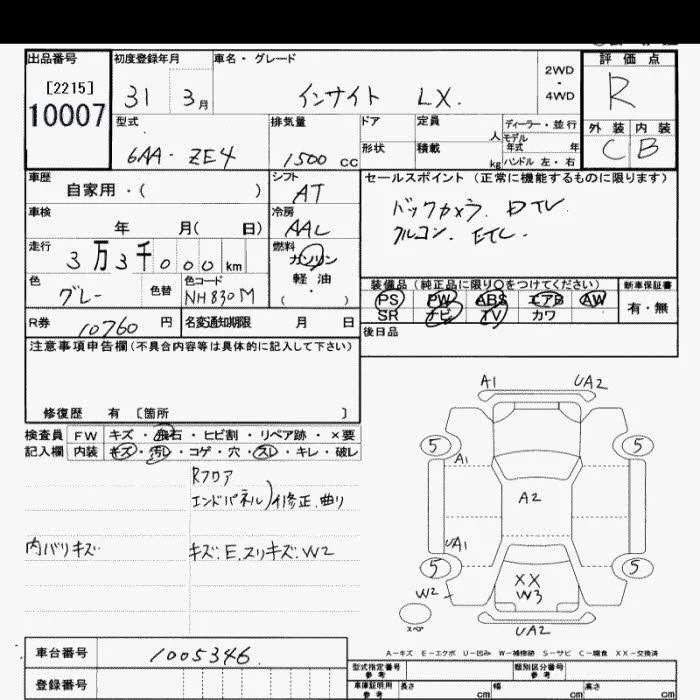 出品番号 初度登録年月 車名・グレード 評価点
[2215] 10007 31 3月 インサイト LX. 2WD・4WD R
型式 排気量 ドア 定員 人 ディーラー・並行 外装 内装
6AA-ZE4 1500cc 形状 積載 kg モデル年式 年 ハンドル 左・右 C B
車歴 シフト セールスポイント (正常に機能するものに限ります)
自家用・( ) AT バックカメラ. DTV
車検 冷房 クルコン. ETC.
年 月( 日) AAC
走行 燃料
3万3千000km ガソリン
軽油
・( )
色 色替 色コード 装備品 (純正品に限り○をつけてください) 新車保証書
グレー NH830M PS PW ABS エアB AW 有・無
SR ナビ TV カワ
R券 10760円 名変通知期限 月 日 後日品
注意事項申告欄(不具合内容等は具体的に記入して下さい)
修復歴 有 〔箇所 〕
検査員 FW キズ・飛石・ヒビ割・リペア跡・×要
記入欄 内装 キズ・汚レ・コゲ・穴・スレ・キレ・破レ
Rフロア
エンドパネル)修正.曲り
内バリキズ キズ.E.スリキズ.W2
A1 UA2
5 5
A1
A2
UA1
5 5
XX
W2 W3
スペア
UA2
A-キズ E-エクボ U-凹み W-補修跡 S-サビ C-腐食 XX-交換済
車台番号 1005346.
登録番号
型式指定番号 参考 類別区分番号 参考
車庫証明用 参考 長さ cm 幅 cm 高さ cm